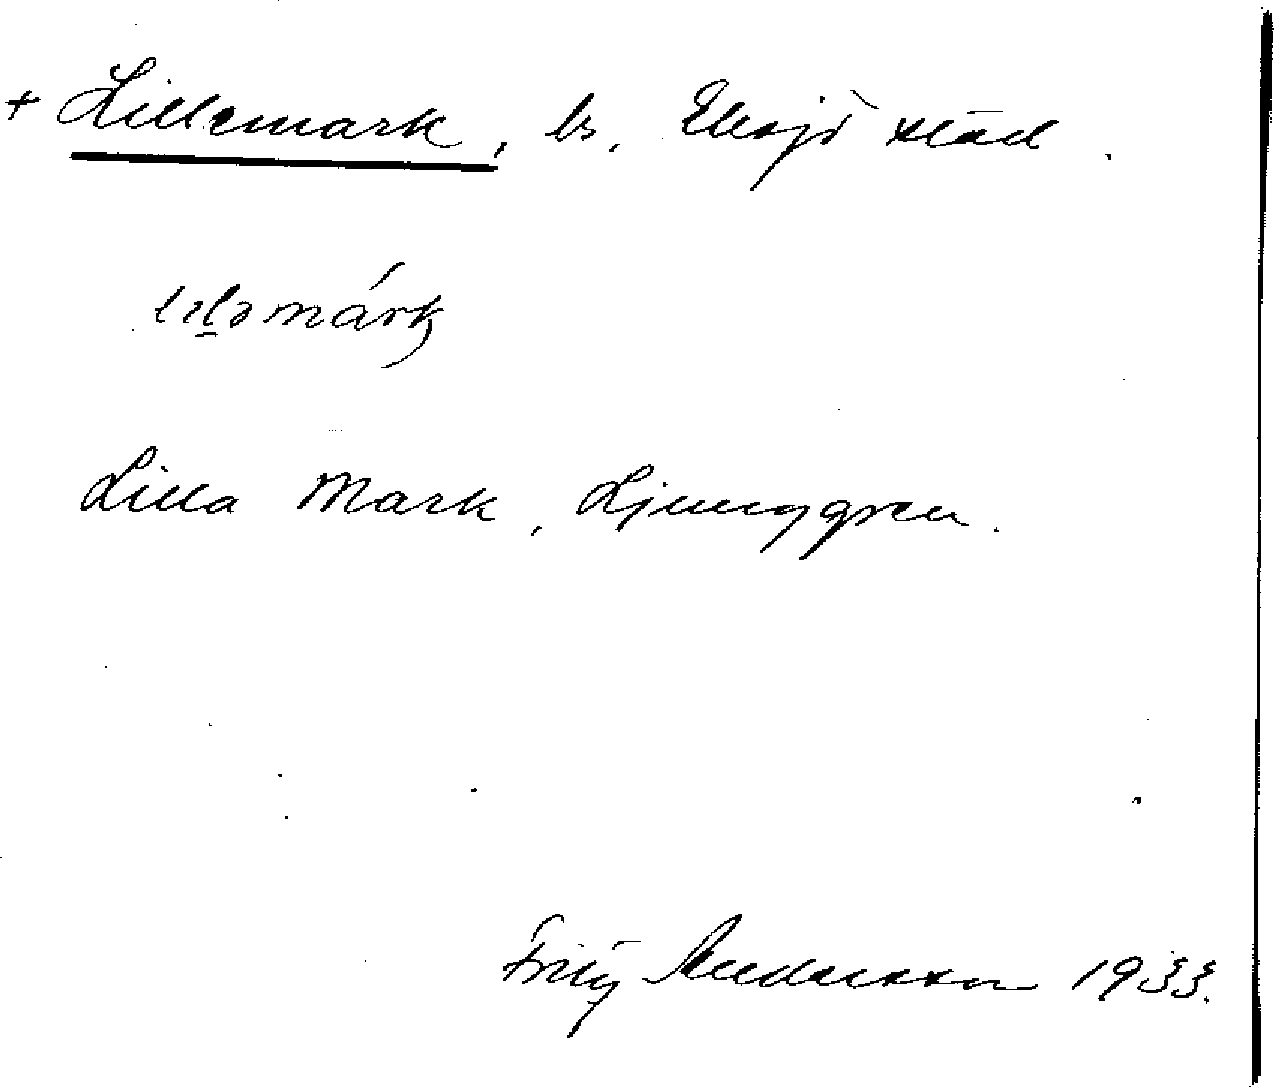 + Lillemark, ls. Eksjö stad.
lıl̲əmárk
Lilla Mark, Ljunggren.
Fritz Andersson 1933.